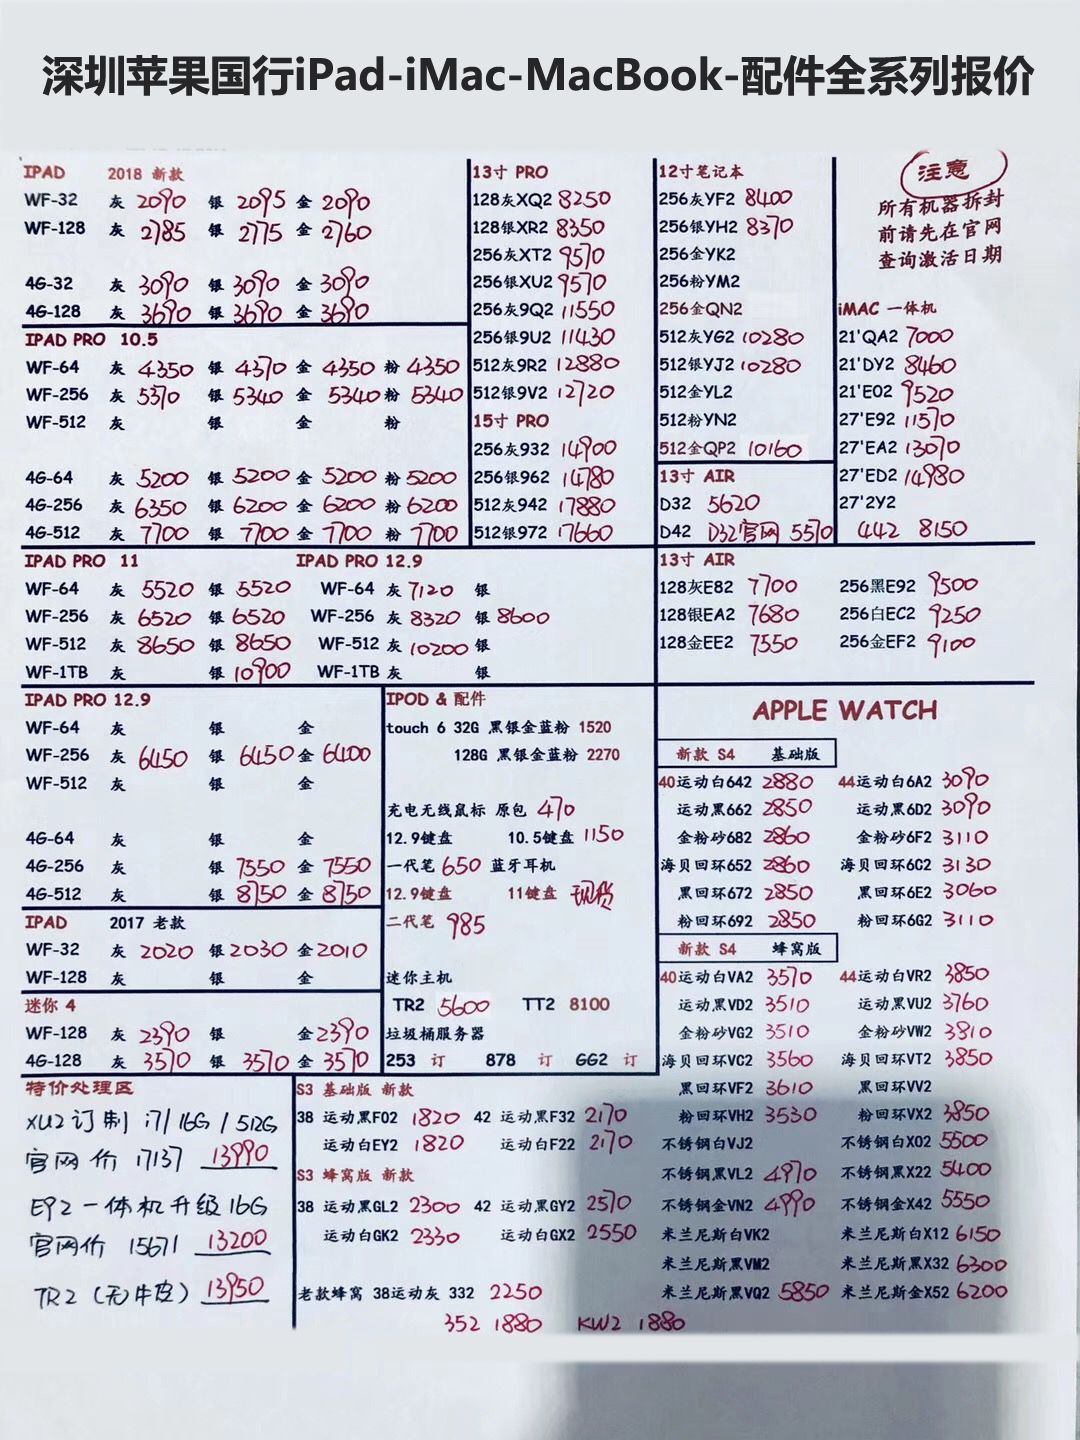 深圳苹果国行iPad-iMac-MacBook-配件全系列报价
IPAD 2018 新款
WF-32 灰 2090 银 2095 金 2090
WF-128 灰 2785 银 2775 金 2760
4G-32 灰 3090 银 3090 金 3090
4G-128 灰 3690 银 3690 金 3690
IPAD PRO 10.5
WF-64 灰 4350 银 4370 金 4350 粉 4350
WF-256 灰 5370 银 5340 金 5340 粉 5340
WF-512 灰 银 金 粉
4G-64 灰 5200 银 5200 金 5200 粉 5200
4G-256 灰 6350 银 6200 金 6200 粉 6200
4G-512 灰 7700 银 7700 金 7700 粉 7700
13寸 PRO
128灰XQ2 8250
128银XR2 8350
256灰XT2 9570
256银XU2 9570
256灰9Q2 11550
256银9U2 11430
512灰9R2 12880
512银9V2 12720
15寸 PRO
256灰932 14900
256银962 14780
512灰942 17880
512银972 17660
12寸笔记本
256灰YF2 8400
256银YH2 8370
256金YK2
256粉YM2
256金QN2
512灰YG2 10280
512银YJ2 10280
512金YL2
512粉YN2
512金QP2 10160
13寸 AIR
D32 5620
D42 D32官网 5570
注意
所有机器拆封
前请先在官网
查询激活日期
iMAC 一体机
21'QA2 7000
21'DY2 8460
21'E02 9520
27'E92 11570
27'EA2 13070
27'ED2 14980
27'2Y2
442 8150
IPAD PRO 11
WF-64 灰 5520 银 5520
WF-256 灰 6520 银 6520
WF-512 灰 8650 银 8650
WF-1TB 灰 银 10900
IPAD PRO 12.9
WF-64 灰 7120 银
WF-256 灰 8320 银 8600
WF-512 灰 10200 银
WF-1TB 灰 银
13寸 AIR
128灰E82 7700 256黑E92 9500
128银EA2 7680 256白EC2 9250
128金EE2 7550 256金EF2 9100
IPAD PRO 12.9
WF-64 灰 银 金
WF-256 灰 6450 银 6450 金 6400
WF-512 灰 银 金
4G-64 灰 银 金
4G-256 灰 银 7550 金 7550
4G-512 灰 银 8750 金 8750
IPAD 2017 老款
WF-32 灰 2020 银 2030 金 2010
WF-128 灰 银 金
迷你 4
WF-128 灰 2390 银 金 2390
4G-128 灰 3570 银 3570 金 3570
IPOD & 配件
touch 6 32G 黑银金蓝粉 1520
128G 黑银金蓝粉 2270
充电无线鼠标 原包 470
12.9键盘 10.5键盘 1150
一代笔 650 蓝牙耳机
12.9键盘 11键盘 现货
二代笔 985
迷你主机
TR2 5600 TT2 8100
垃圾桶服务器
253 订 878 订 GG2 订
APPLE WATCH
新款 S4 基础版
40运动白642 2880 44运动白6A2 3090
运动黑662 2850 运动黑6D2 3090
金粉砂682 2860 金粉砂6F2 3110
海贝回环652 2860 海贝回环6C2 3130
黑回环672 2850 黑回环6E2 3060
粉回环692 2850 粉回环6G2 3110
新款 S4 蜂窝版
40运动白VA2 3570 44运动白VR2 3850
运动黑VD2 3510 运动黑VU2 3760
金粉砂VG2 3510 金粉砂VW2 3810
海贝回环VC2 3560 海贝回环VT2 3850
黑回环VF2 3610 黑回环VV2
粉回环VH2 3530 粉回环VX2 3850
不锈钢白VJ2 不锈钢白X02 5500
不锈钢黑VL2 4970 不锈钢黑X22 5400
不锈钢金VN2 4990 不锈钢金X42 5550
米兰尼斯白VK2 米兰尼斯白X12 6150
米兰尼斯黑VM2 米兰尼斯黑X32 6300
米兰尼斯黑VQ2 5850 米兰尼斯金X52 6200
特价处理区
XU2 订制 i7/16G/512G
官网价 17137 13990
E92 一体机升级16G
官网价 15671 13200
TR2（无牛皮）13950
S3 基础版 新款
38 运动黑F02 1820 42 运动黑F32 2170
运动白EY2 1820 运动白F22 2170
S3 蜂窝版 新款
38 运动黑GL2 2300 42 运动黑GY2 2570
运动白GK2 2330 运动白GX2 2550
老款蜂窝 38运动灰 332 2250
352 1880 KW2 1880